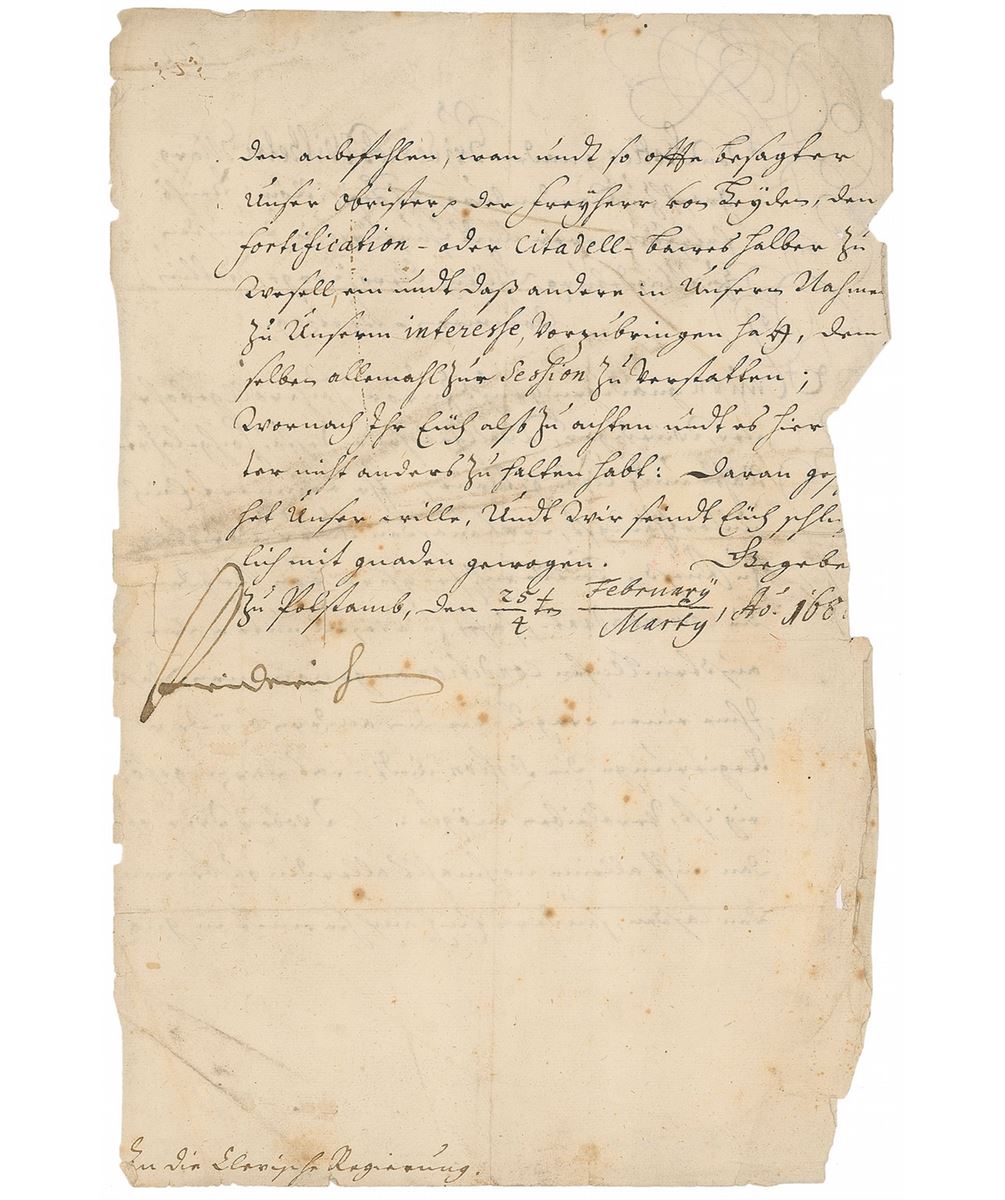 den anbefehlen, wan undt so offte besagter
Unser Obrister der Freyherr von Heyden, den
fortification- oder Citadell- bawes halber zu
Wesell, ein undt daß andere in Unserm Nahme
zu Unserm interesse, vorzubringen hatt, dem
selben allemahl zur Session zu verstatten;
Wornach Ihr Euch alß zu achten undt es hier
ter nicht anders zu halten habt: Daran ges
het Unser wille, Undt Wir seindt Euch schl
lich mit gnaden gewogen. Gegebe
zu Potstamb, den 25/4 ten February/Marty, Ao. 168
Friderich
An die Clevische Regierung.